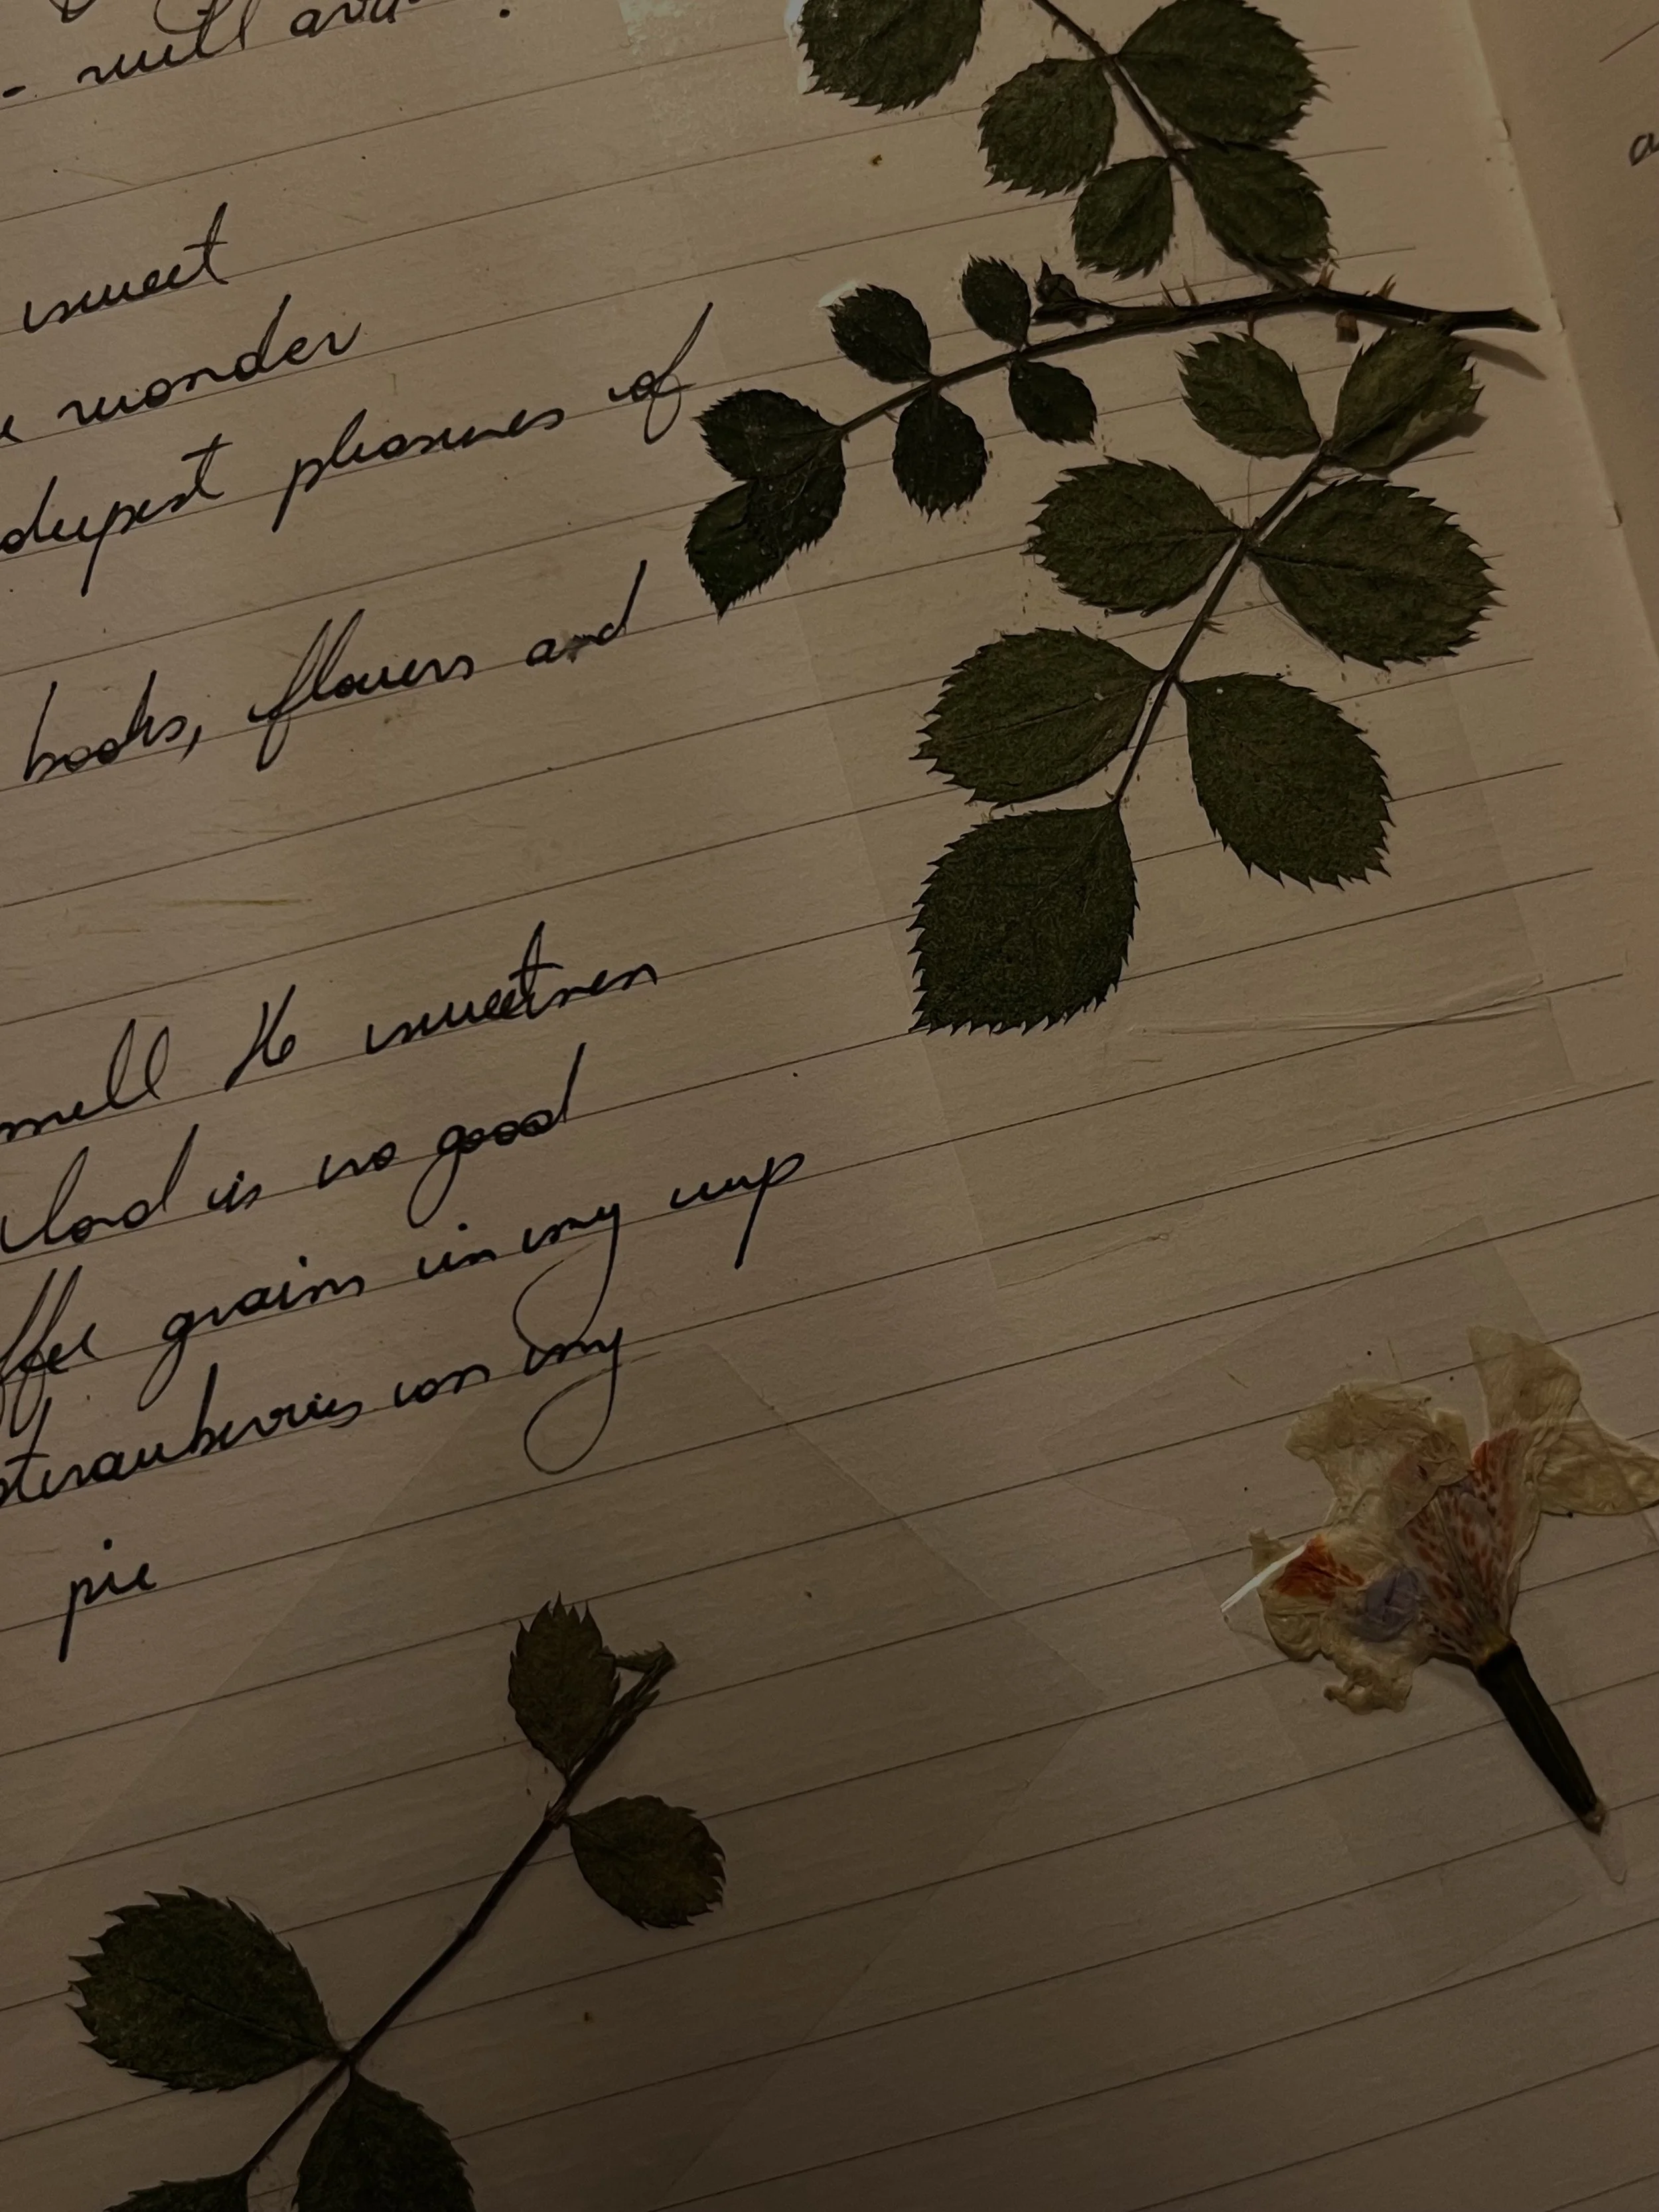 - will
sweet
wonder
deepest pleasures of
books, flowers and
smell the sweetness
load is no good
ffee grains in my cup
sterauberries on my
pie
a